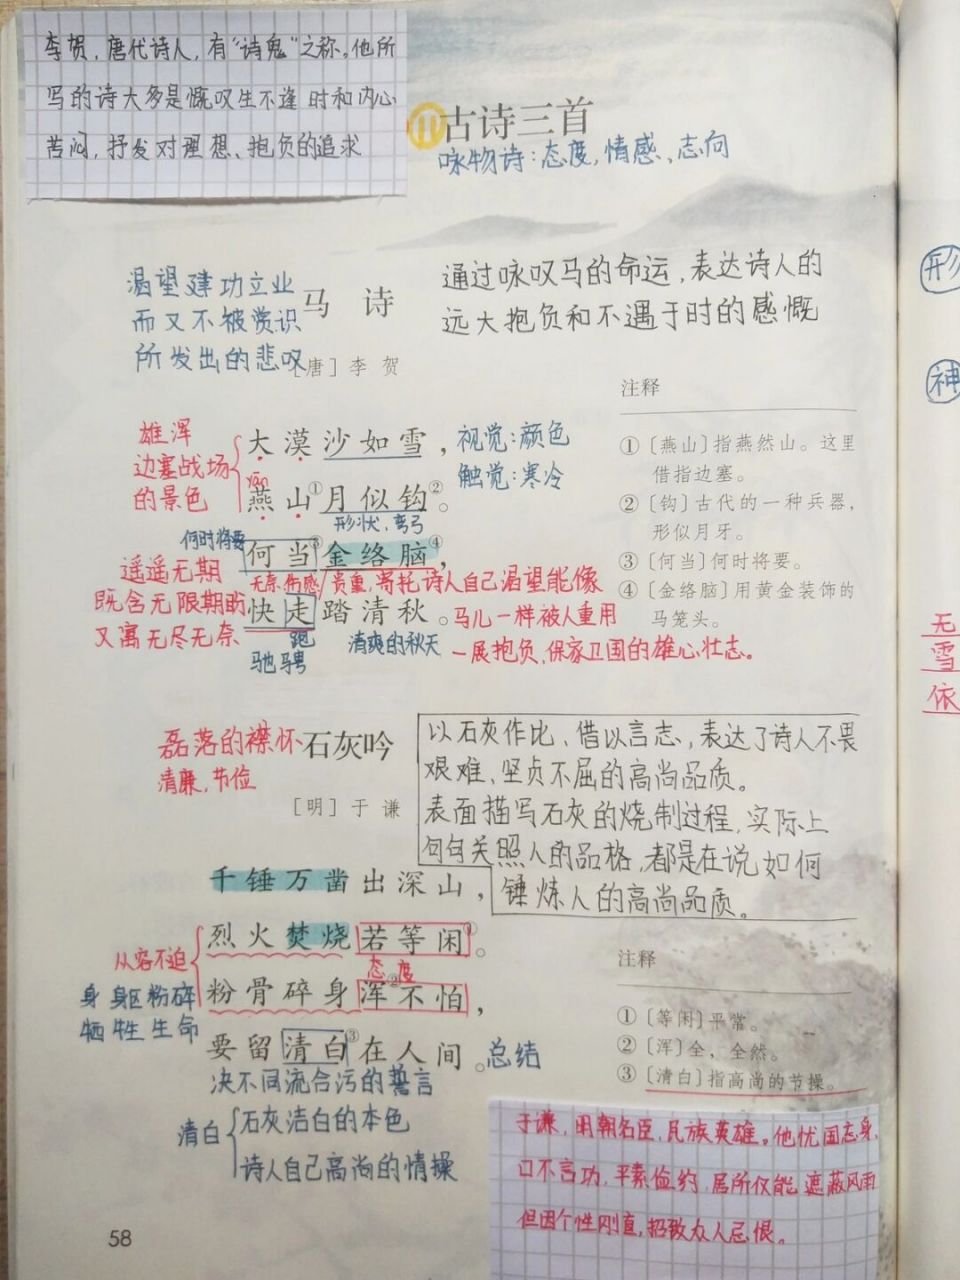 李贺，唐代诗人，有“诗鬼”之称。他所
写的诗大多是慨叹生不逢时和内心
苦闷，抒发对理想、抱负的追求
11 古诗三首
咏物诗：态度，情感、志向
渴望建功立业
而又不被赏识
所发出的悲叹
马诗
[唐] 李贺
通过咏叹马的命运，表达诗人的
远大抱负和不遇于时的感慨
雄浑
边塞战场
的景色
大漠沙如雪，
视觉：颜色
触觉：寒冷
yān
燕山①月似钩②。
形状，弯弓
何时将要
何当③金络脑④，
遥遥无期
既含无限期盼
又寓无尽无奈
无奈，伤感/贵重，寄托诗人自己渴望能像
快走踏清秋。
马儿一样被人重用
跑
驰骋
清爽的秋天
一展抱负，保家卫国的雄心壮志。
注释
①〔燕山〕指燕然山。这里
借指边塞。
②〔钩〕古代的一种兵器，
形似月牙。
③〔何当〕何时将要。
④〔金络脑〕用黄金装饰的
马笼头。
磊落的襟怀
清廉，节俭
石灰吟
[明] 于谦
以石灰作比、借以言志，表达了诗人不畏
艰难、坚贞不屈的高尚品质。
表面描写石灰的烧制过程，实际上
句句关照人的品格，都是在说如何
锤炼人的高尚品质。
千锤万凿出深山，
烈火焚烧若等闲①。
从容不迫
态度
粉骨碎身浑②不怕，
身躯粉碎
牺牲生命
要留清白③在人间。
总结
决不同流合污的誓言
清白
石灰洁白的本色
诗人自己高尚的情操
注释
①〔等闲〕平常。
②〔浑〕全，全然。
③〔清白〕指高尚的节操。
于谦，明朝名臣，民族英雄。他忧国忘身，
口不言功，平素俭约，居所仅能遮蔽风雨
但因个性刚直，招致众人忌恨。
58
形
神
无
雪
依